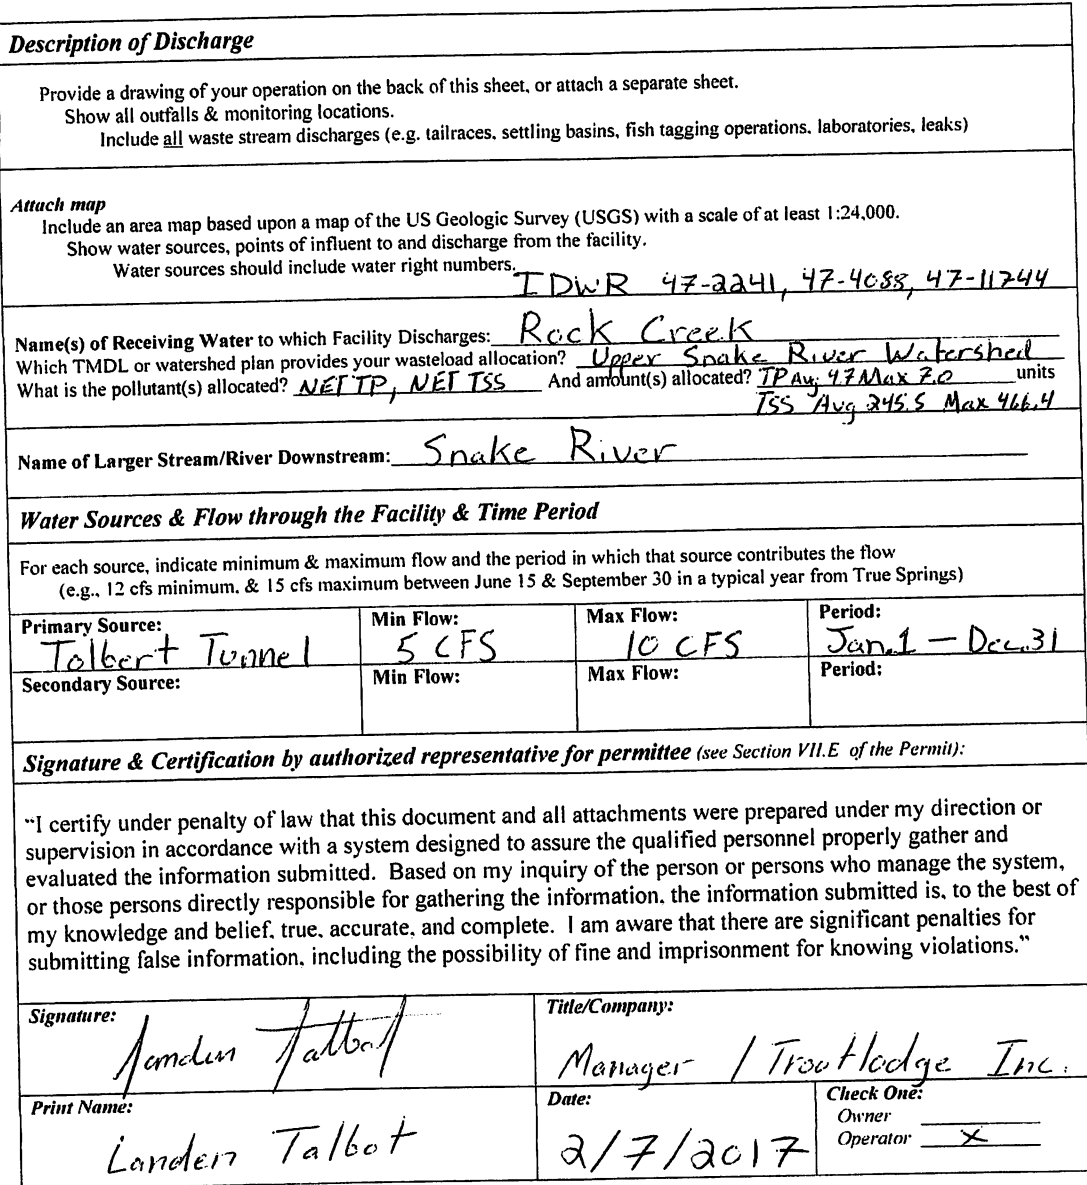 Description of Discharge
Provide a drawing of your operation on the back of this sheet, or attach a separate sheet.
Show all outfalls & monitoring locations.
Include all waste stream discharges (e.g. tailraces, settling basins, fish tagging operations, laboratories, leaks)
Attach map
Include an area map based upon a map of the US Geologic Survey (USGS) with a scale of at least 1:24,000.
Show water sources, points of influent to and discharge from the facility.
Water sources should include water right numbers.
IDWR 47-2241, 47-4088, 47-11744
Name(s) of Receiving Water to which Facility Discharges: Rock Creek
Which TMDL or watershed plan provides your wasteload allocation? Upper Snake River Watershed
What is the pollutant(s) allocated? NET TP, NET TSS And amount(s) allocated? TP Avg 4.7 Max 7.0 units
TSS Avg 245.5 Max 466.4
Name of Larger Stream/River Downstream: Snake River
Water Sources & Flow through the Facility & Time Period
For each source, indicate minimum & maximum flow and the period in which that source contributes the flow
(e.g., 12 cfs minimum, & 15 cfs maximum between June 15 & September 30 in a typical year from True Springs)
Primary Source: Min Flow: Max Flow: Period:
Tolbert Tunnel 5 CFS 10 CFS Jan.1 — Dec.31
Secondary Source: Min Flow: Max Flow: Period:
Signature & Certification by authorized representative for permittee (see Section VII.E of the Permit):
"I certify under penalty of law that this document and all attachments were prepared under my direction or
supervision in accordance with a system designed to assure the qualified personnel properly gather and
evaluated the information submitted. Based on my inquiry of the person or persons who manage the system,
or those persons directly responsible for gathering the information, the information submitted is, to the best of
my knowledge and belief, true, accurate, and complete. I am aware that there are significant penalties for
submitting false information, including the possibility of fine and imprisonment for knowing violations."
Signature: Title/Company:
Landen Talbot Manager / Troutlodge Inc.
Print Name: Date: Check One:
Owner
Landen Talbot 2/7/2017 Operator X